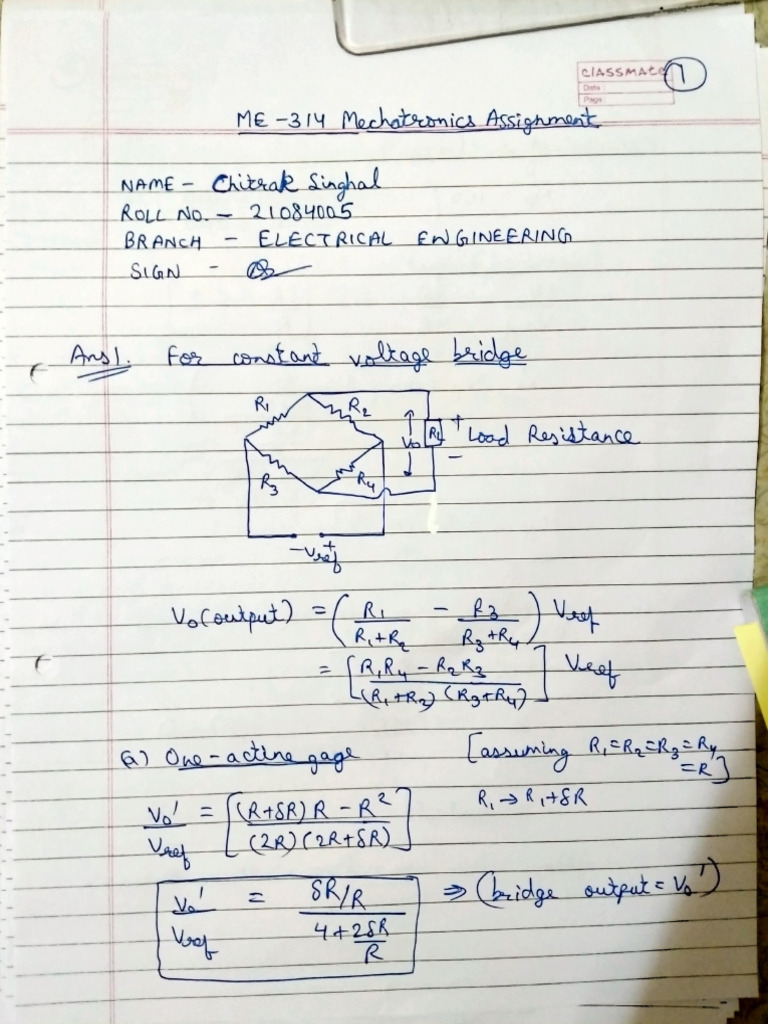 classmate
Date :
Page :
1
ME - 314 Mechatronics Assignment
NAME - Chitrak Singhal
ROLL NO. - 21084005
BRANCH - ELECTRICAL ENGINEERING
SIGN -
Ans1. For constant voltage bridge
R1 R2
V0 RL + Load Resistance
-
R3 R4
- Vref +
V0(output) = (R1/(R1+R2) - R3/(R3+R4)) Vref
= [(R1R4 - R2R3)/((R1+R2)(R3+R4))] Vref
(a) One-active gage [assuming R1=R2=R3=R4
=R]
V0'/Vref = [((R+δR)R - R²)/((2R)(2R+δR))] R1 → R1+δR
V0'/Vref = (δR/R)/(4+2δR/R) ⇒ (bridge output = V0')